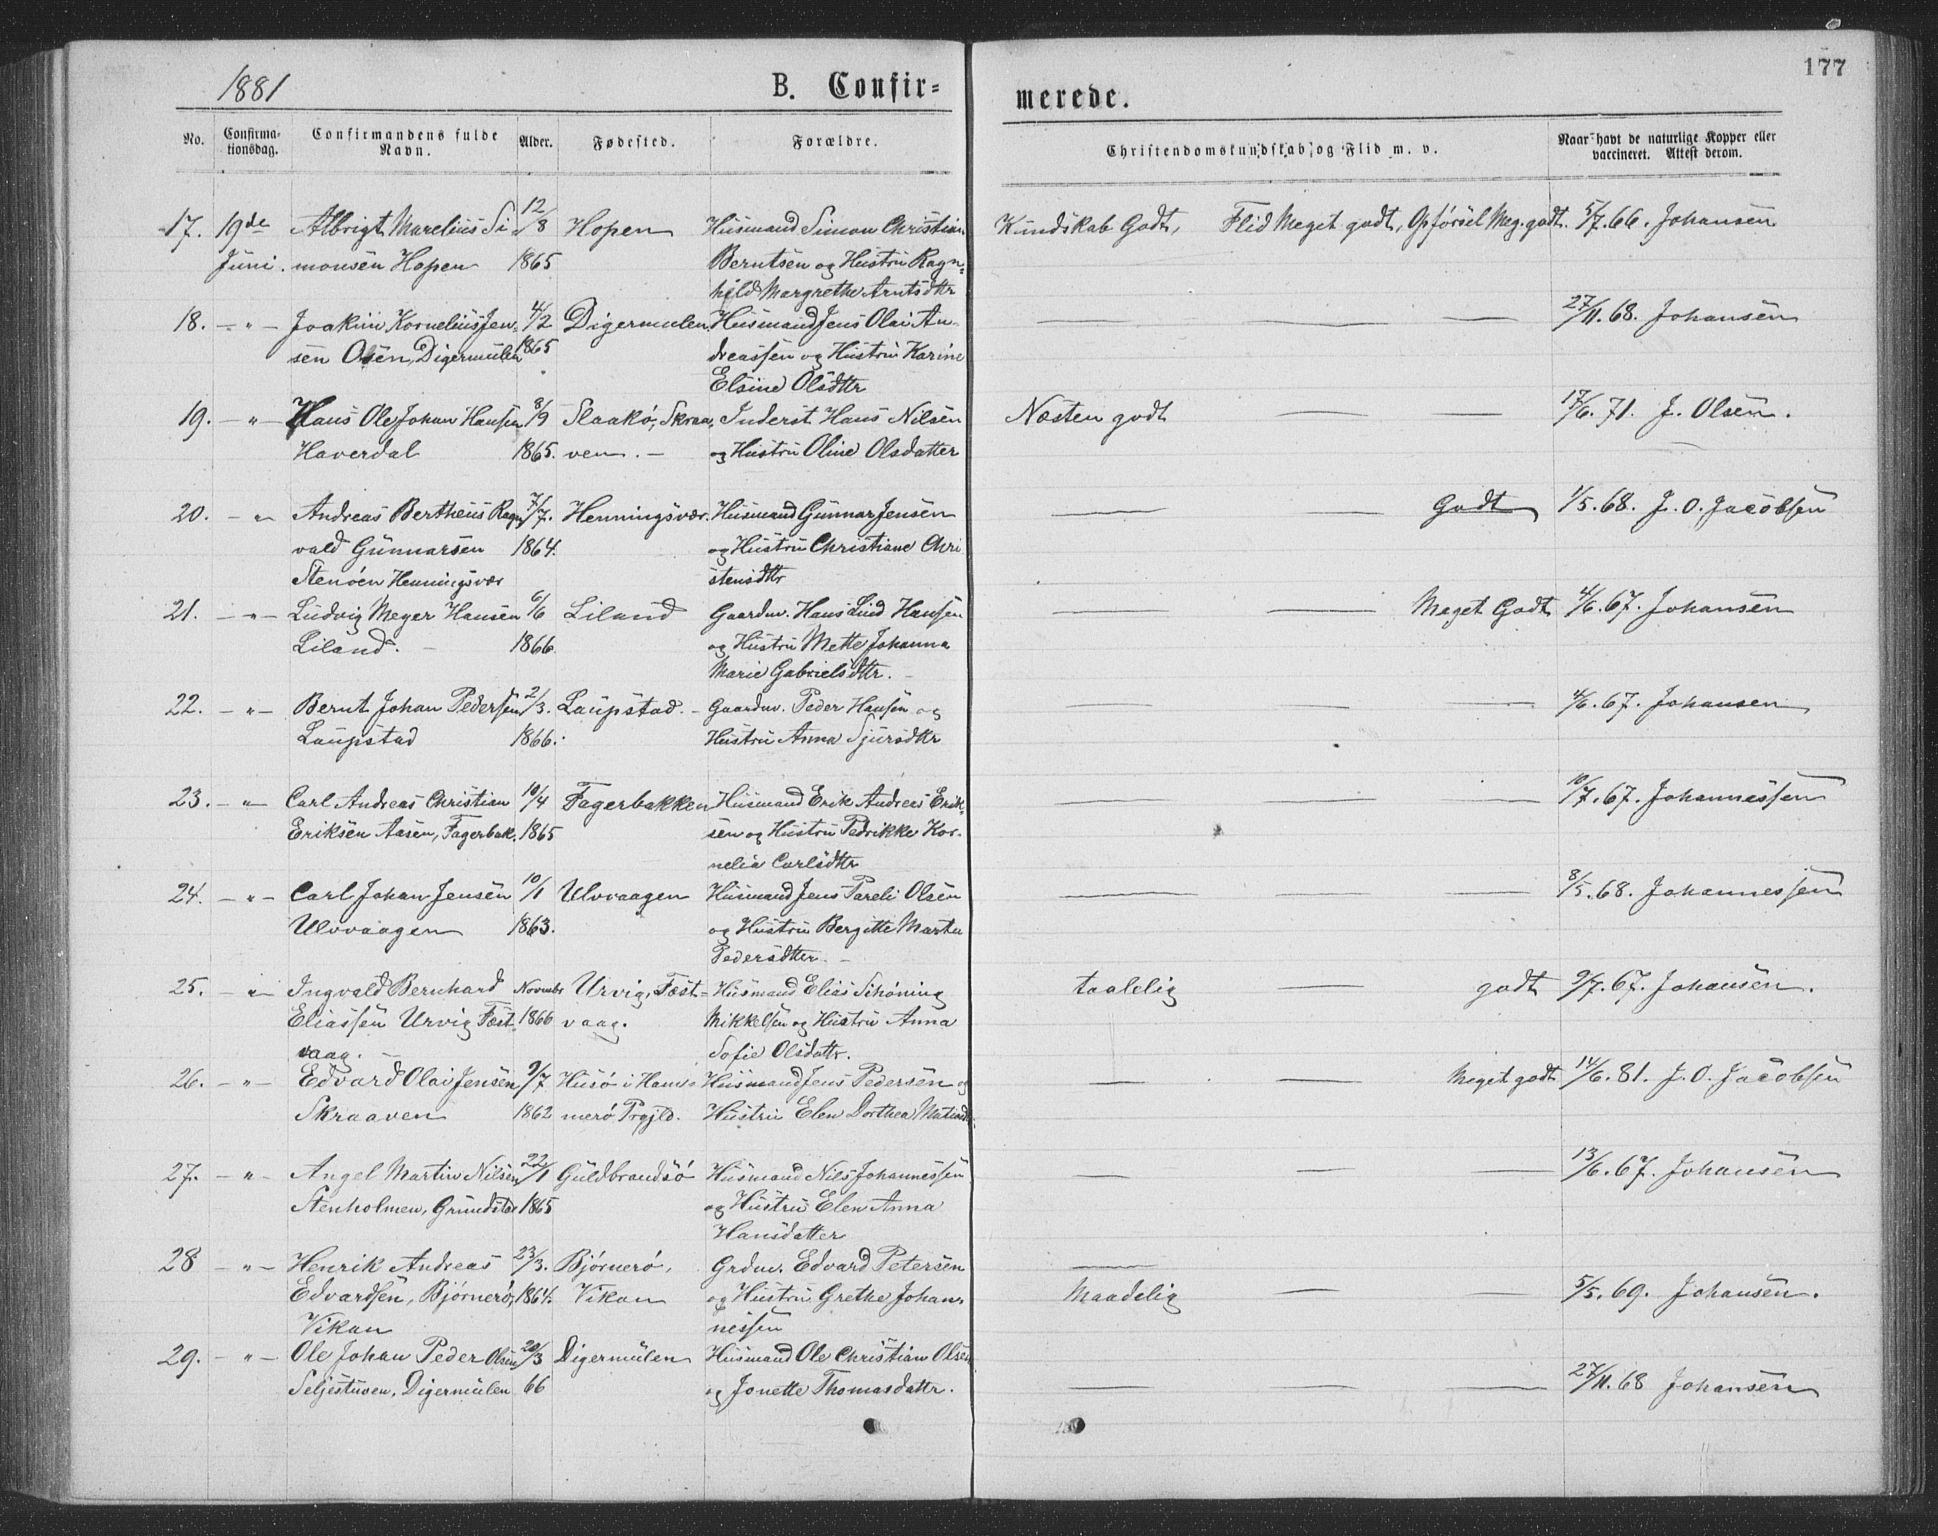 177
1881
B. Confir=
merede.
No.
Confirma-
tionsdag.
Confirmandens fulde
Navn.
Alder.
Fødested.
Forældre.
Christendomskundskab og Flid m. v.
Naar havt de naturlige Kopper eller
vaccineret. Attest derom.
17. 19de Albrigt Marelius Si- 12/8 Hopen Husmand Simon Christian Kundskab Godt, Flid Meget godt, Opførsel Meg. godt. 5/7. 66. Johansen
Juni. monsen Hopen 1865 Berntsen og Hustru Ragn=
hild Margrethe Arntsdtr
18. - " - Joakim Kornelius Jen- 4/2 Digermulen. Husmand Jens Olai An- — — — 27/11. 68. Johansen
sen Osen, Digermulen 1865 dreassen og Hustru Karine
Elsine Olsdtr
19. - " - Hans Ole Johan Hansen 8/9 Slaakø, Skraa- Inderst Hans Nilsen Næsten godt — — 17/6. 71. J. Olsen.
Haverdal 1865. ven. - og Hustru Oline Olsdatter
20. - " - Andreas Bertheus Ragn- 7/7. Henningsvær. Husmand Gunnar Jensen — — Godt 1/5. 68. J. O. Jacobsen
vald Gunnarsen 1864. og Hustru Christiane Chri
Stenøen Henningsvær stensdtr
21. - " - Ludvig Meyer Hansen 6/6 Liland Gaardm. Hans Lind Hansen — — Meget Godt 4/6. 67. Johansen
Liland. - 1866. og Hustru Mette Johanna
Marie Gabrielsdtr. -
22. - " - Bernt Johan Pedersen 2/3. Laupstad. - Gaardm. Peder Hansen og — — — 4/6. 67. Johansen
Laupstad 1866. Hustru Anna Sjursdtr
23. - " - Carl Andreas Christian 10/4 Fagerbakken Husmand Erik Andreas Erik- — — — 10/7. 67. Johannessen
Eriksen Aasen, Fagerbak. 1865 sen og Hustru Pedrikke Kor-
nelia Carlsdtr
24. - " - Carl Johan Jensen 10/1 Ulvvaagen Husmand Jens Pareli Olsen — — — 8/5. 68. Johannessen
Ulvvaagen 1863. og Hustru Bergitte Marta
Pedersdtter. -
25. - " - Ingvald Bernhard Novembr Urvig, Fæst- Husmand Elias Schøning taalelig — godt 9/7. 67. Johansen.
Eliassen Urvig Fæst- 1866 vaag. Mikkelsen og Hustru Anna
vaag. - Sofie Olsdattr.
26. - " - Edvard Olai Jensen 9/7 Husø i Ham- Husmand Jens Pedersen og — — Meget godt 14/6. 81. J. O. Jacobsen
Skraaven 1862 merø Prgjld. Hustru Elen Dorthea
27. - " - Angel Martin Nilsen 22/1 Guldbrandsø Husmand Nils Johannessen — — — 13/6. 67. Johansen
Stenholmen, Grundstad 1865 og Hustru Elen Anna
Hansdatter
28 - " - Henrik Andreas 23/3. Bjørnerø, Grdm. Edvard Petersen —
Edvardsen, Bjørnerø, 1864. Vikan og Hustru Grethe Johan- Maadelig — — 5/5. 69. Johansen.
Vikan nessen
29. - " - Ole Johan Peder Olsen 20/3 Digermulen Husmand Ole Christian Olsen
Seljestuven, Digermulen 66 og Jonette Thomasdattr. — — — 27/11. 68 Johansen